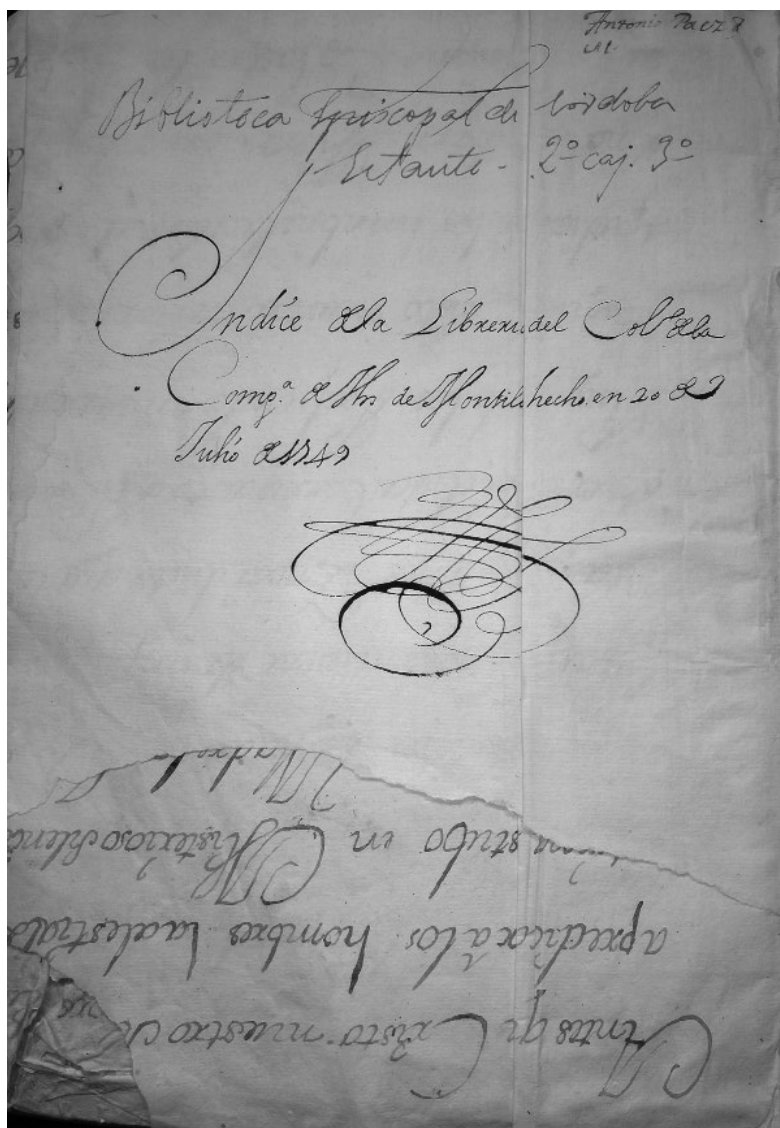 Antonio Paez
Biblioteca Episcopal de Cordoba
Estante - 2º caj. 3º
Indíce de la Libreria del Colº de la
Compª de Jhs de Montilla hecho en 20 de
Julio de 1749
Madre
estubo en Misterioso silenci
a predicar a los hombres la celestial
Antes q Cristo nuestro